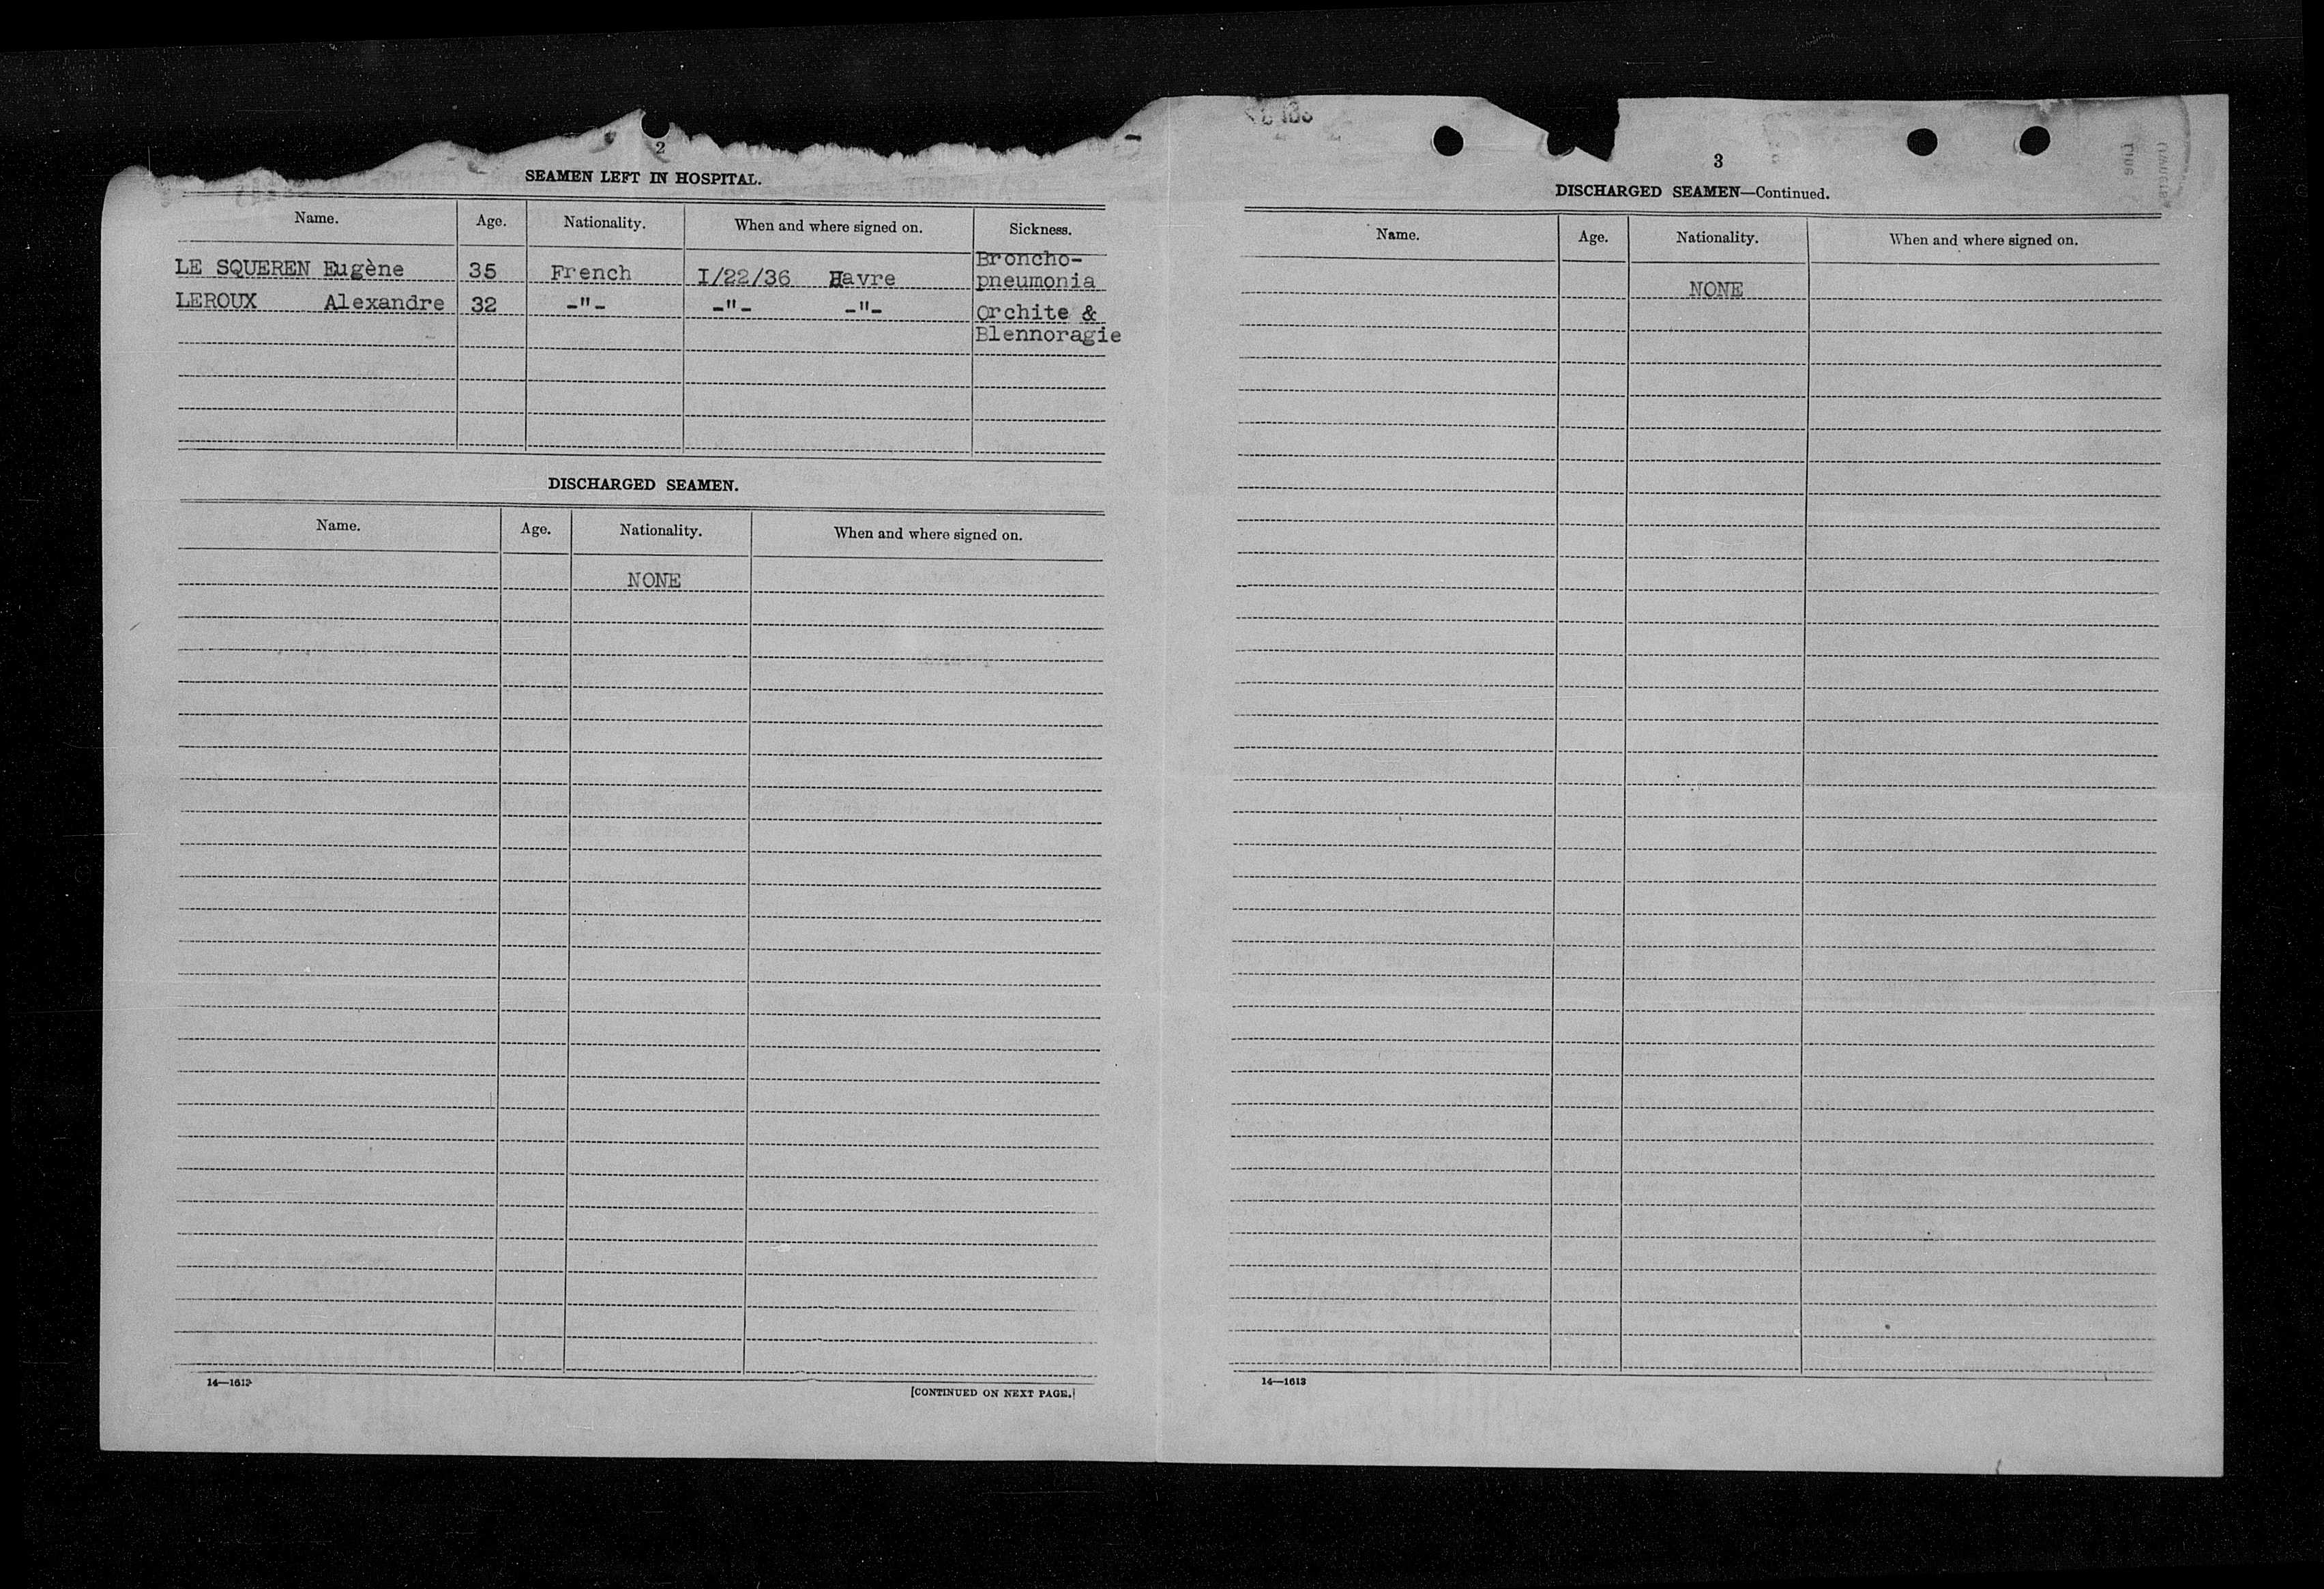 2
SEAMEN LEFT IN HOSPITAL.
Name. Age. Nationality. When and where signed on. Sickness.
LE SQUEREN Eugène 35 French I/22/36 Havre Broncho-
pneumonia
LEROUX Alexandre 32 -"- -"- -"- Orchite &
Blennoragie
DISCHARGED SEAMEN.
Name. Age. Nationality. When and where signed on.
NONE
14—1613
[CONTINUED ON NEXT PAGE.]
3
DISCHARGED SEAMEN—Continued.
Name. Age. Nationality. When and where signed on.
NONE
14—1613